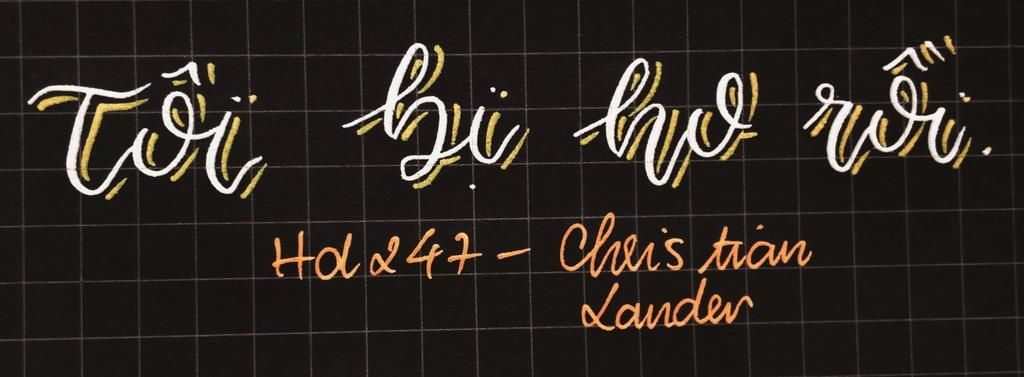 Tôi bị hơ rồi.
Hdz247 - Christian
Lander